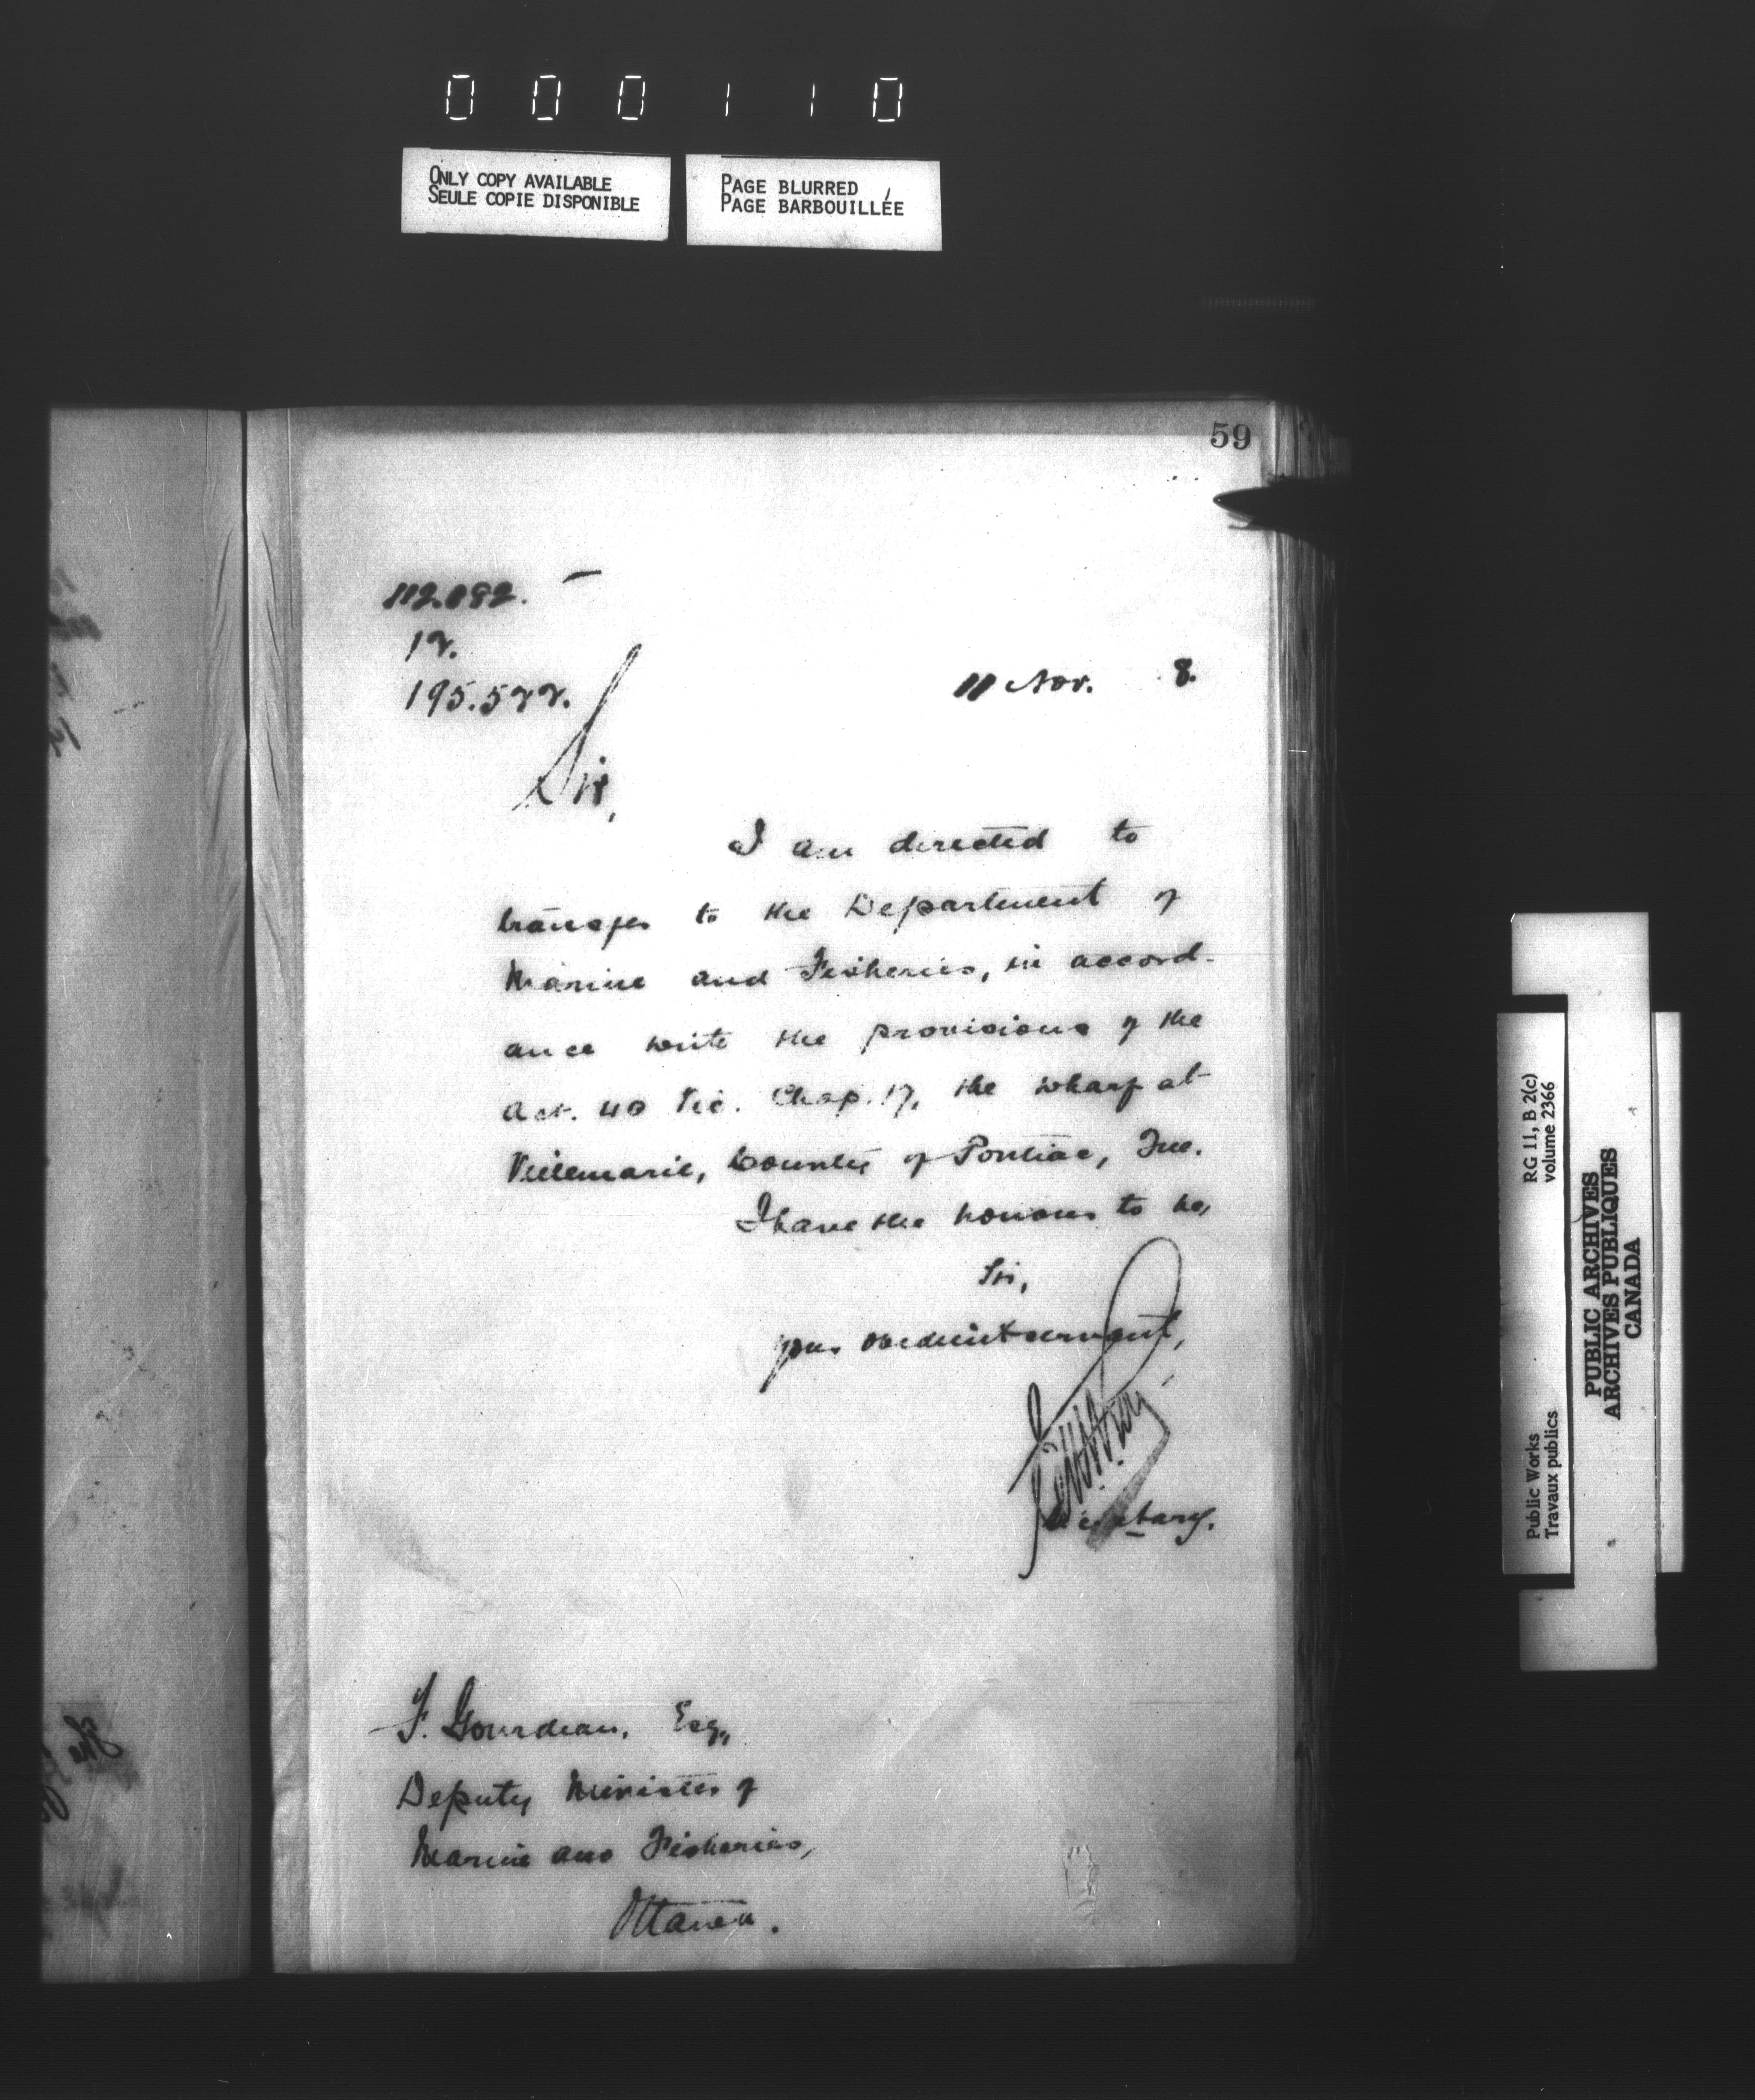 000110
ONLY COPY AVAILABLE
SEULE COPIE DISPONIBLE
PAGE BLURRED
PAGE BARBOUILLÉE
59
112.082.
195.522.
11 Nov. 8.
Sir,
I am directed to
transfer to the Department of
Marine and Fisheries, in accord-
ance with the provisions of the
Act. 40 Vic. Chap. 17, the wharf at
Villemarie, County of Pontiac, Que.
I have the honour to be,
Sir,
your obedient servant,
Secretary.
F. Gourdeau, Esq,
Deputy Minister of
Marine and Fisheries,
Ottawa.
RG 11, B 2(c)
volume 2366
Public Works
Travaux publics
PUBLIC ARCHIVES
ARCHIVES PUBLIQUES
CANADA